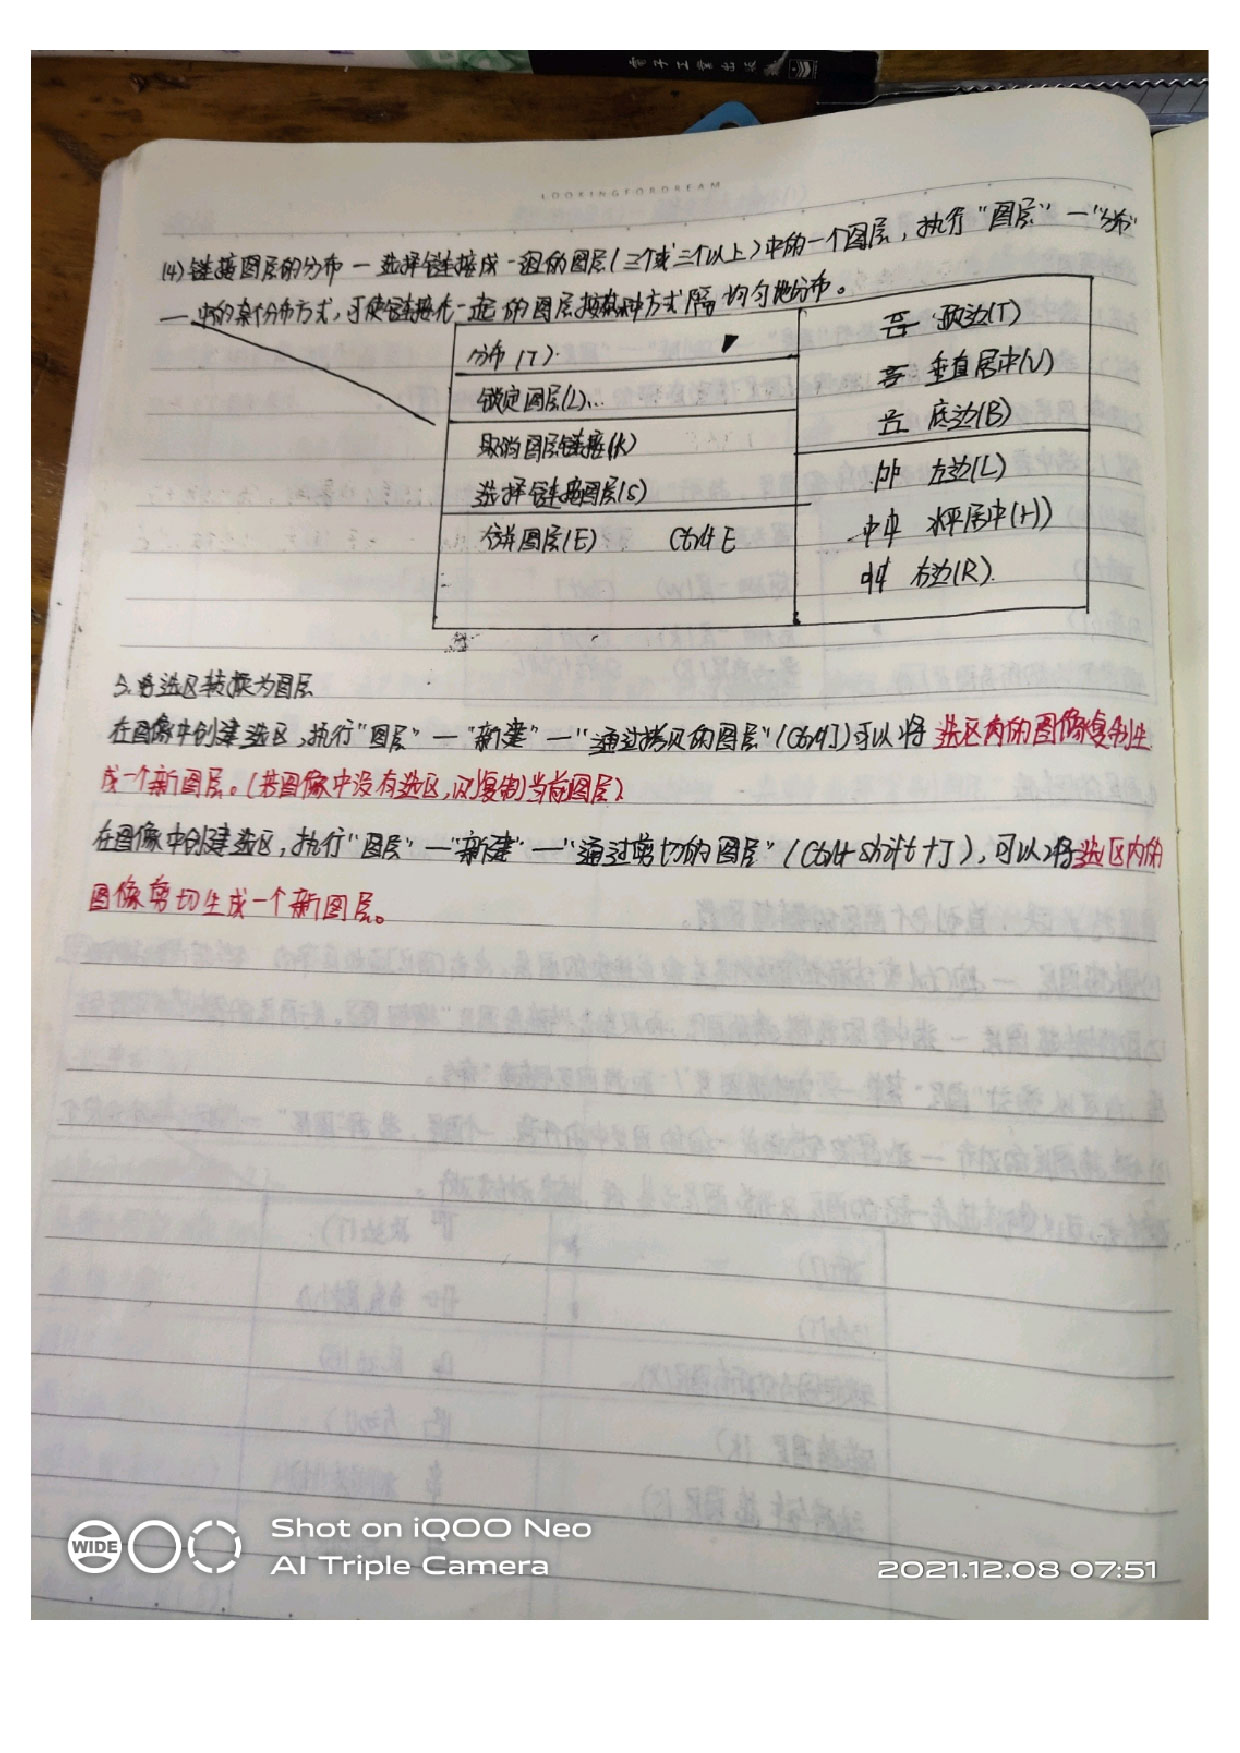 電子工業出版
LOOKINGFORDREAM
(4)链接图层的分布 — 选择链接成一组的图层(三个或三个以上)中的一个图层，执行"图层"—"分布"
— 中的某个分布方式，可使链接在一起的图层按某种方式隔均匀地分布。
分布(T)
锁定图层(L)...
取消图层链接(K)
选择链接图层(S)
合并图层(E) Ctrl+E
顶边(T)
垂直居中(V)
底边(B)
左边(L)
水平居中(H)
右边(R)
5.将选区转换为图层
在图像中创建选区,执行"图层"—"新建"—"通过拷贝的图层"(Ctrl+J)可以将选区内的图像复制生
成一个新图层。(若图像中没有选区,则复制当前图层)
在图像中创建选区,执行"图层"—"新建"—"通过剪切的图层"(Ctrl+Shift+J),可以将选区内的
图像剪切生成一个新图层。
WIDE
Shot on iQOO Neo
AI Triple Camera
2021.12.08 07:51